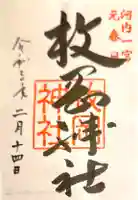 河内一宮
元春日
枚岡神社
枚岡
神社
令和
二月十四日